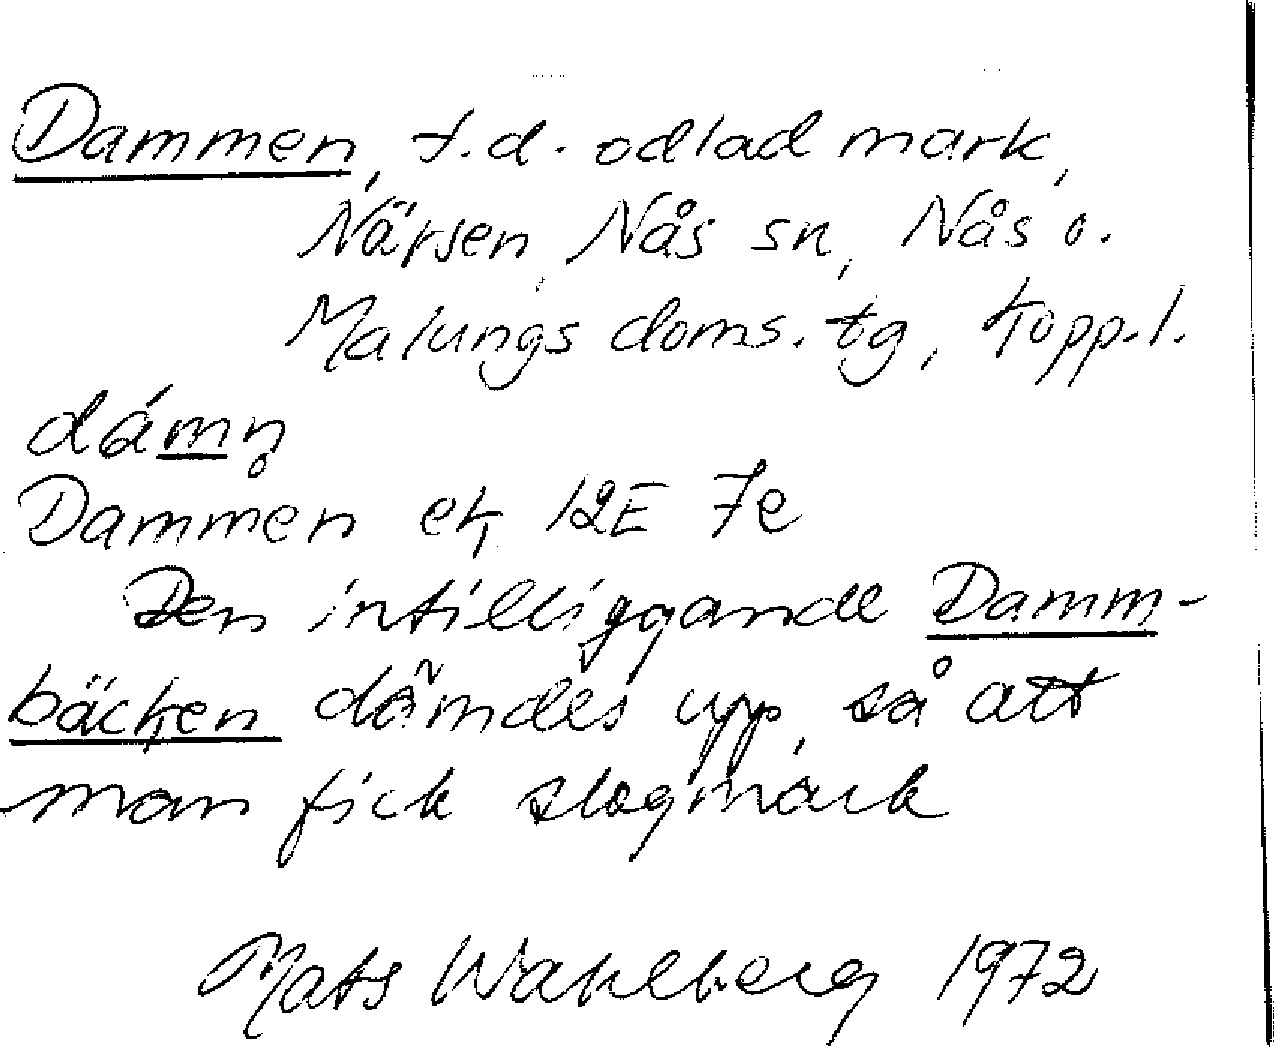 Dammen, f.d. odlad mark,
Närsen, Nås sn, Nås o.
Malungs doms. tg, Kopp.l.
dámn̥
Dammen ek, 12E 7e
Den intilliggande Damm-
bäcken dämdes upp, så att
man fick slogmark
Mats Wahlberg 1972